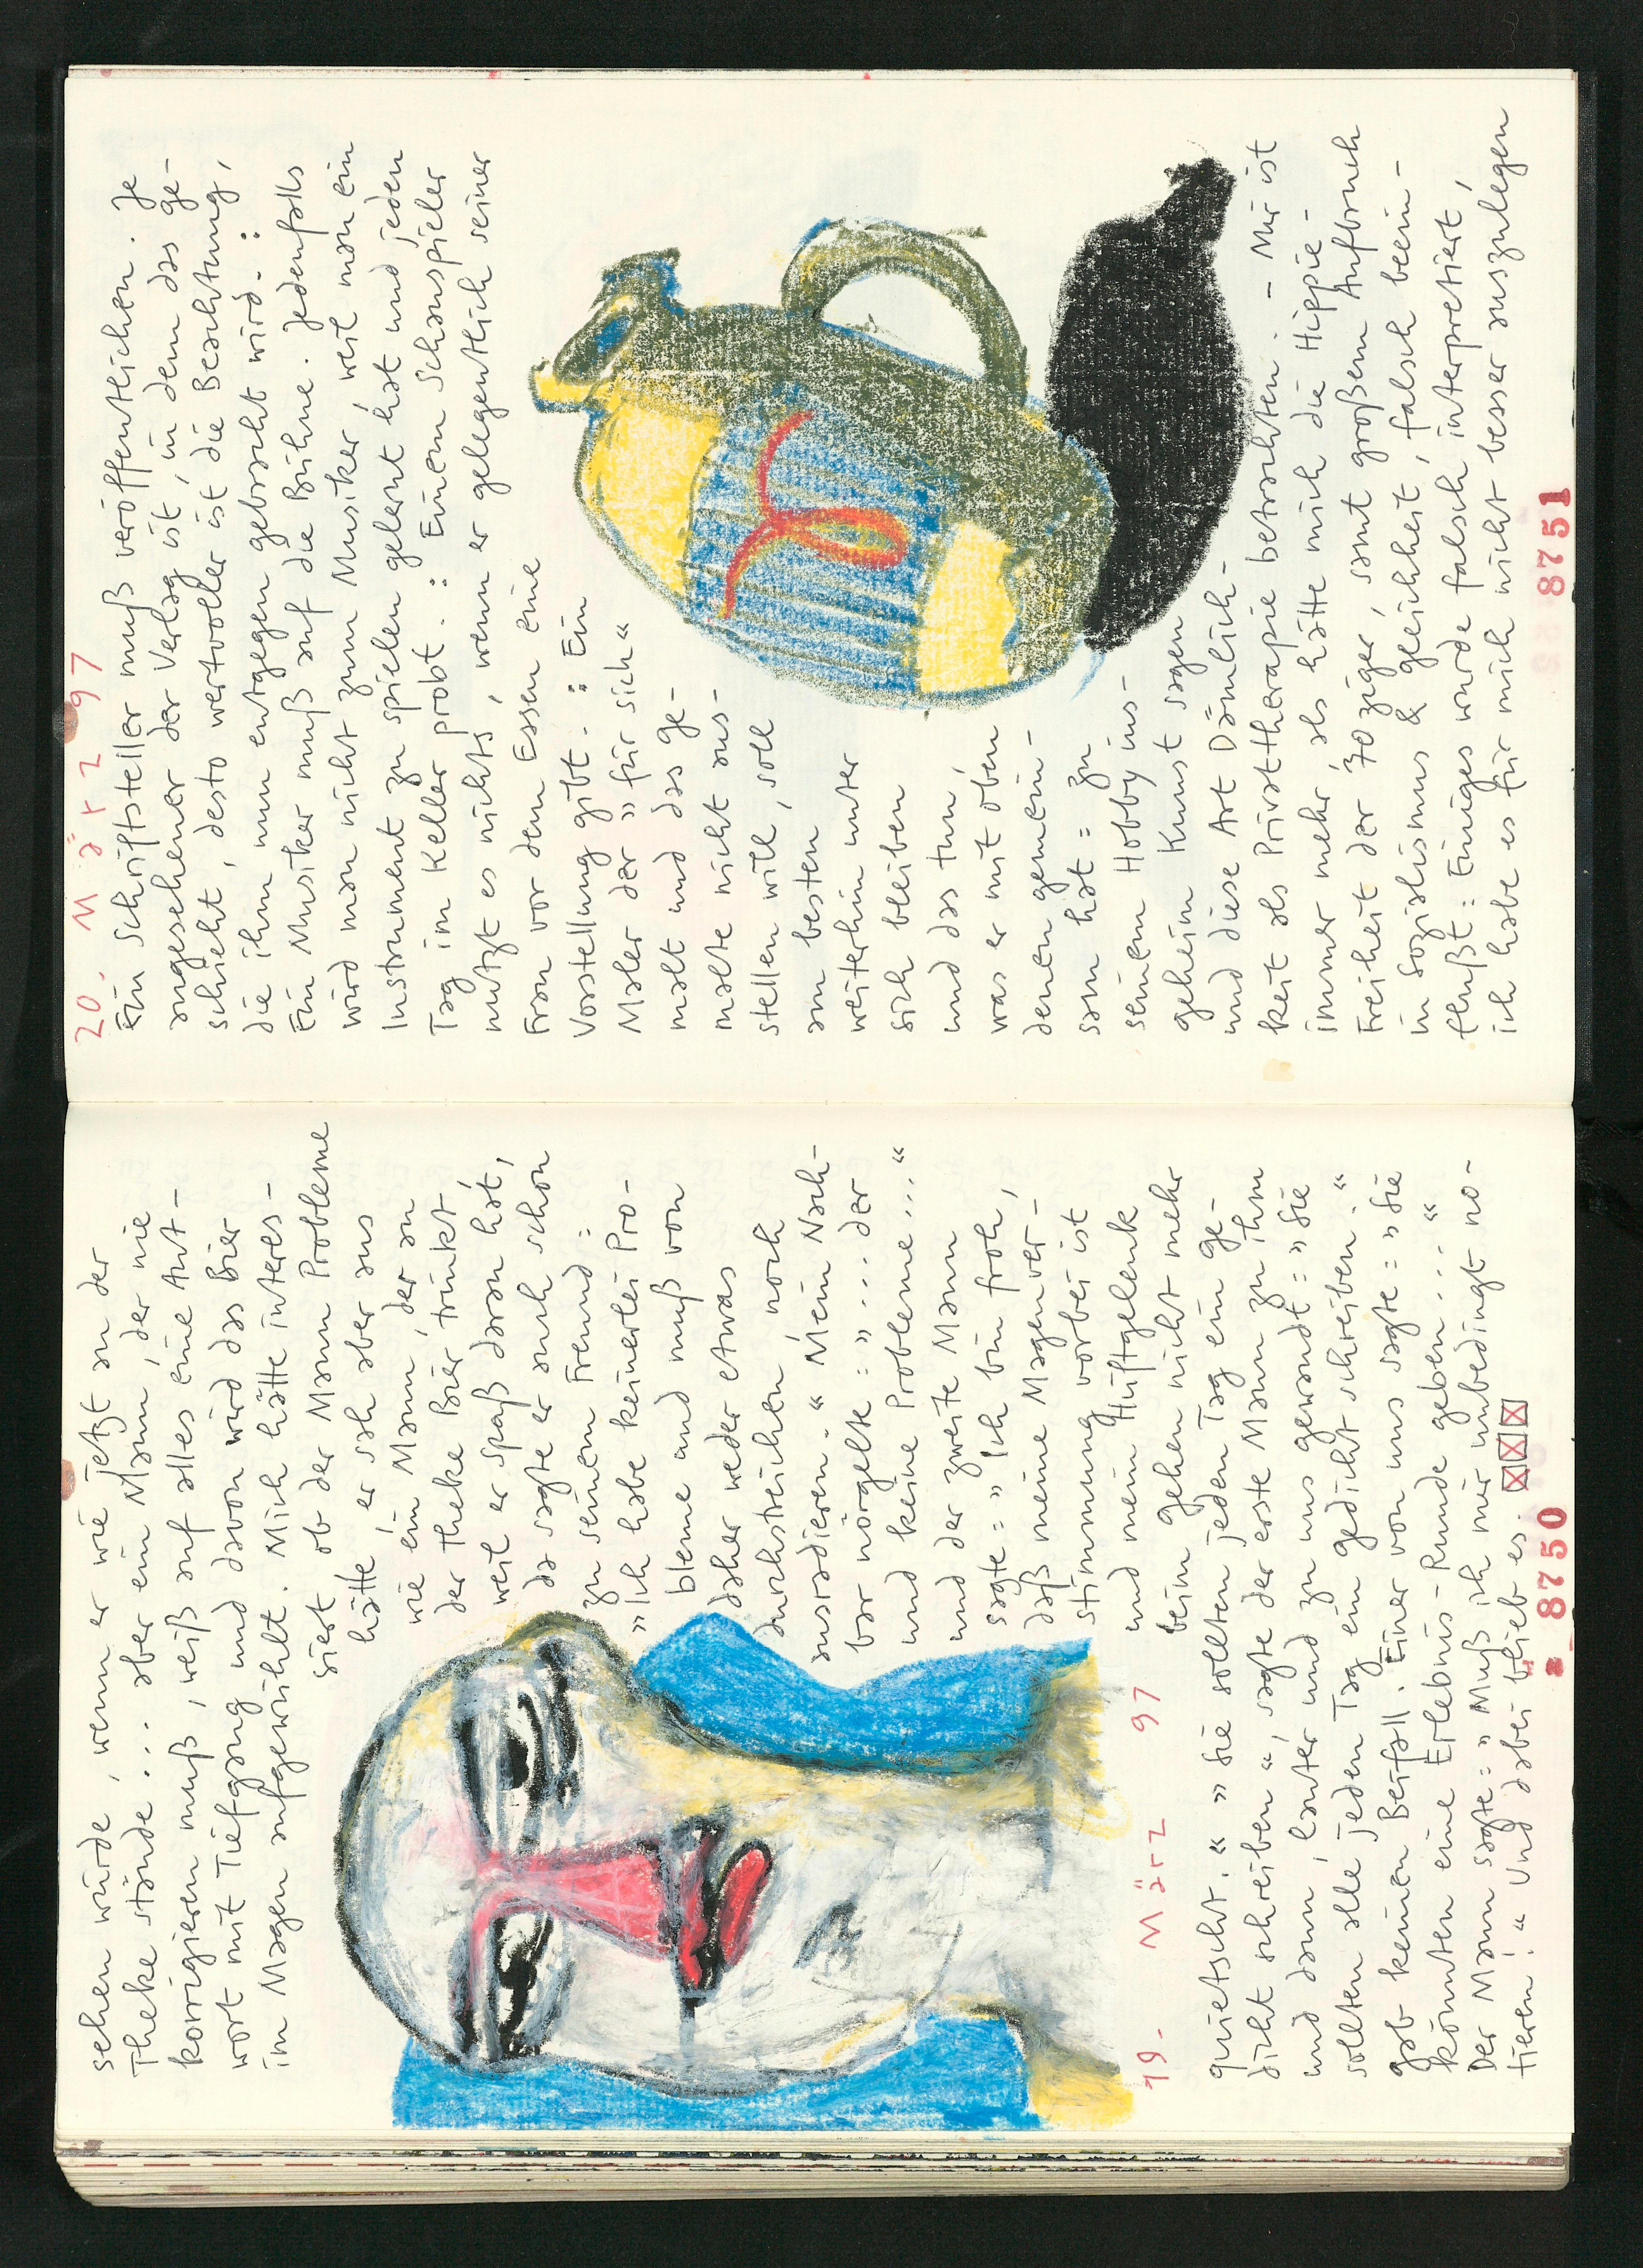 sehen würde, wenn er wie jetzt an der
Theke stände... aber ein Mann, der nie
korrigieren muß, weiß auf alles eine Ant-
wort mit Tiefgang und davon wird das Bier
im Magen aufgewühlt. Mich hätte interes-
siert ob der Mann Probleme
hätte, er sah aber aus
wie ein Mann, der an
der Theke Bier trinkt,
weil er spaß daran hat,
da sagte er auch schon
zu seinem Freund:
»Ich habe keinerlei Pro-
bleme und muß von
daher weder etwas
durchstreichen noch
ausradieren.« Mein Nach-
bar nörgelte: »... der
und keine Probleme...«
und der zweite Mann
sagte: »Ich bin froh,
daß meine Magenver-
stimmung vorbei ist
und mein Hüftgelenk
beim gehen nicht mehr
19. März 97
quietscht.« »Sie sollten jeden Tag ein ge-
dicht schreiben«, sagte der erste Mann zu ihm
und dann, lauter und zu uns gewandt: »Sie
sollten alle jeden Tag ein gedicht schreiben.«
gab keinen Beifall. Einer von uns sagte: »Sie
könnten eine Erlebnis-Runde geben....«
Der Mann sagte: »Muß ich mir unbedingt no-
tieren!« Und dabei blieb es.
8750
20. März 97
Ein Schriftsteller muß veröffentlichen. Je
angesehener der Verlag ist, in dem das ge-
schieht, desto wertvoller ist die Beachtung,
die ihm nun entgegen gebracht wird. :
Ein Musiker muß auf die Bühne. Jedenfalls
wird man nicht zum Musiker, weil man ein
Instrument zu spielen gelernt hat und jeden
Tag im Keller probt. : Einem Schauspieler
nutzt es nichts, wenn er gelegentlich seiner
Frau vor dem Essen eine
Vorstellung gibt. : Ein
Maler der »für sich«
malt und das ge-
malte nicht aus-
stellen will, soll
am besten
weiterhin unter
sich bleiben
und das tun,
was er mit oben
denen gemein-
sam hat: zu
seinem Hobby ins-
geheim Kunst sagen
und diese Art Dämlich-
keit als Privattherapie betrachten. - Mir ist
immer mehr, als hätte mich die Hippie-
Freiheit der 70ziger, samt großem Aufbruch
in Sozialismus & geeichheit, falsch beein-
flußt: Einiges wurde falsch interpretiert,
ich habe es für mich nicht besser auszulegen
8751